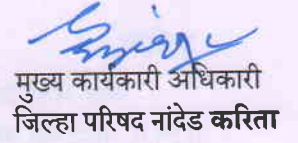 मुख्य कार्यकारी अधिकारी
जिल्हा परिषद नांदेड करिता